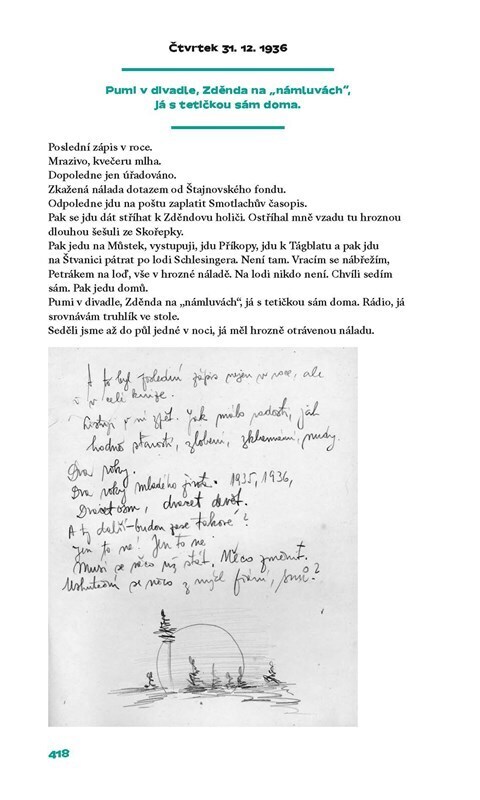 Čtvrtek 31. 12. 1936
Pumi v divadle, Zděnda na „námluvách“,
já s tetičkou sám doma.
Poslední zápis v roce.
Mrazivo, kvečeru mlha.
Dopoledne jen úřadováno.
Zkažená nálada dotazem od Štajnovského fondu.
Odpoledne jdu na poštu zaplatit Smotlachův časopis.
Pak se jdu dát stříhat k Zděndovu holiči. Ostříhal mně vzadu tu hroznou
dlouhou šešuli ze Skořepky.
Pak jedu na Můstek, vystupuji, jdu Příkopy, jdu k Tágblatu a pak jdu
na Štvanici pátrat po lodi Schlesingera. Není tam. Vracím se nábřežím,
Petrákem na loď, vše v hrozné náladě. Na lodi nikdo není. Chvíli sedím
sám. Pak jedu domů.
Pumi v divadle, Zděnda na „námluvách“, já s tetičkou sám doma. Rádio, já
srovnávám truhlík ve stole.
Seděli jsme až do půl jedné v noci, já měl hrozně otrávenou náladu.
A to byl poslední zápis nejen v roce, ale
i v celé knize.
Listuji v ní zpět. Jak málo radosti, jak
hodně starostí, zlobení, zklamání, nudy.
Dva roky.
Dva roky mladého života. 1935, 1936,
Dvacet osm, dvacet devět.
A ty další – budou zase takové?
Jen to ne! Jen to ne.
Musí se něco už stát. Něco změnit.
Uskuteční se něco z mých
418